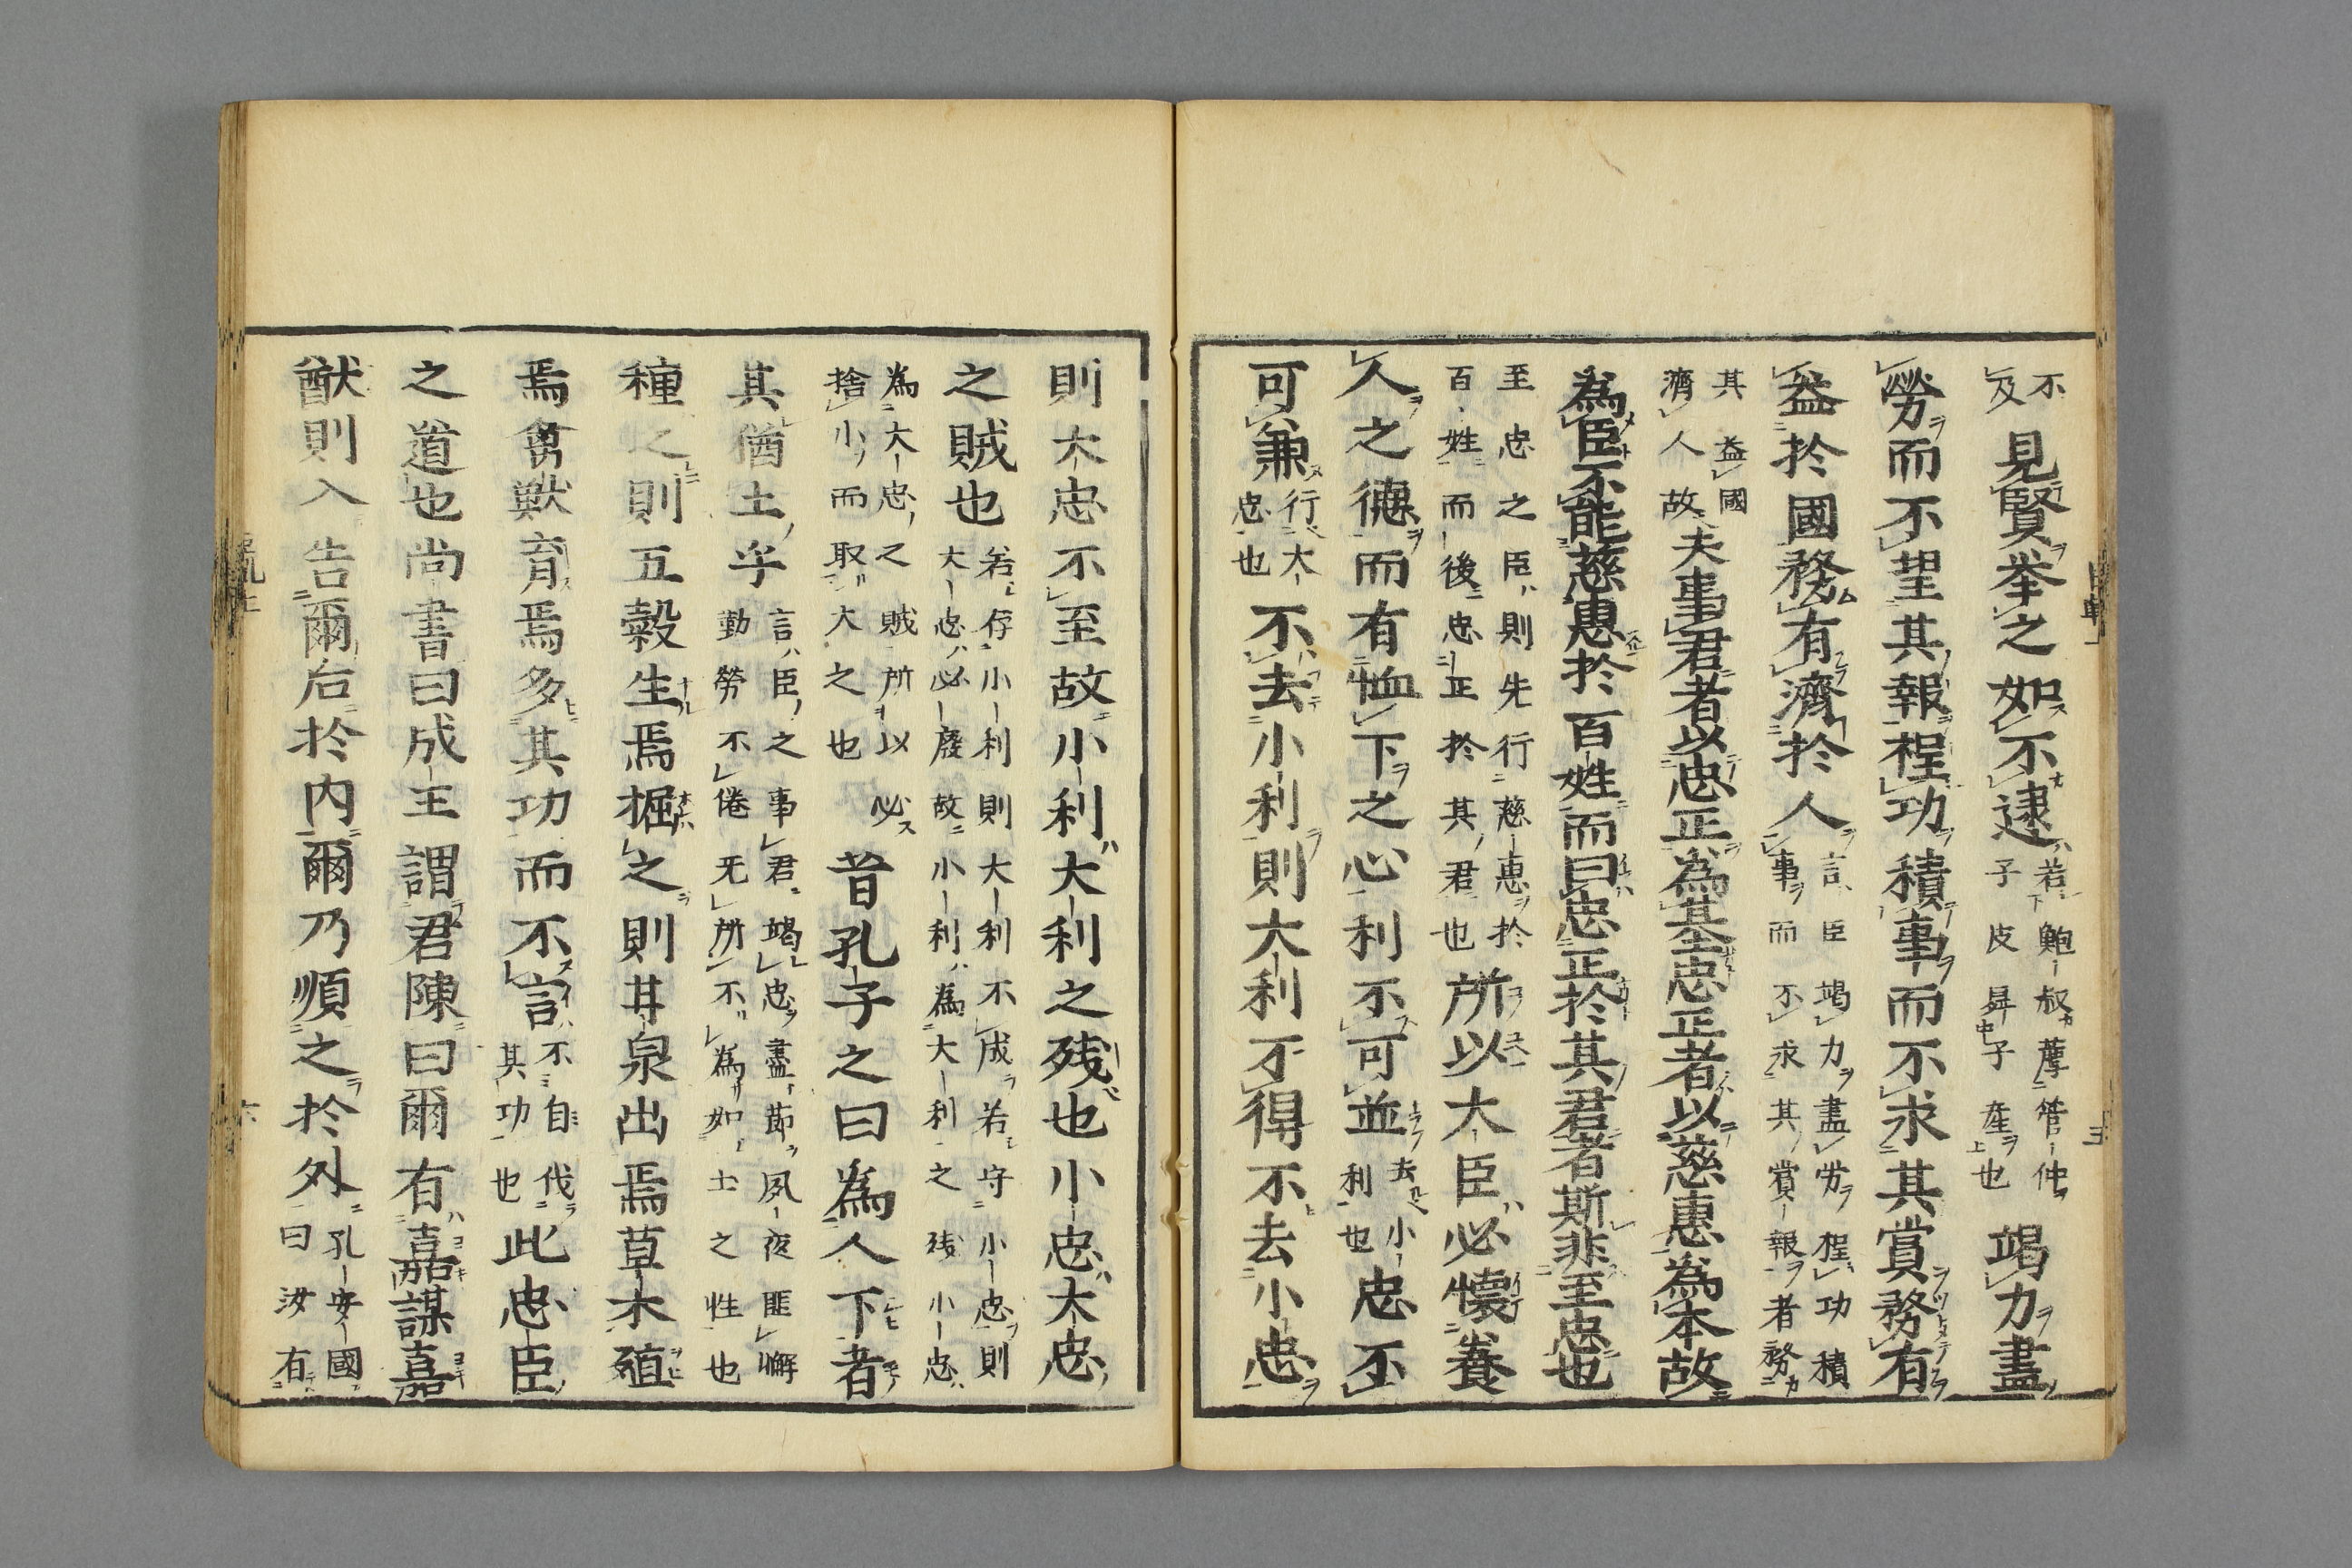 不及見賢举之如不逮若鮑叔薦管仲子皮昇子産也竭力盡
勞而不望其報程功積事而不求其賞務有
益於國務有濟於人言臣竭力盡労程功積事而不求其賞報者務
其益國濟人故夫事君者以忠正為基忠正者以慈惠為本故
為臣不能慈惠於百姓而曰忠正於其君者斯非至忠也
至忠之臣則先行慈惠於百姓而後忠正於其君也所以大臣必懷養
人之德而有恤下之心利不可並去小利也忠不
可兼行大忠也不去小利則大利不得不去小忠
則大忠不至故小利大利之残也小忠大忠
之賊也若存小利則大利不成若守小忠則大忠必廢故小利為大利之残小忠
為大忠之賊所以必捨小而取大之也昔孔子之曰為人下者
其猶土乎言臣之事君竭忠盡節夙夜匪懈勤勞不倦无所不為如土之性也
種之則五穀生焉掘之則井泉出焉草木殖
焉禽獸育焉多其功而不言不自伐其功也此忠臣
之道也尚書曰成王謂君陳曰爾有嘉謀嘉
猷則入告爾后於内爾乃順之於外孔安國曰汝有